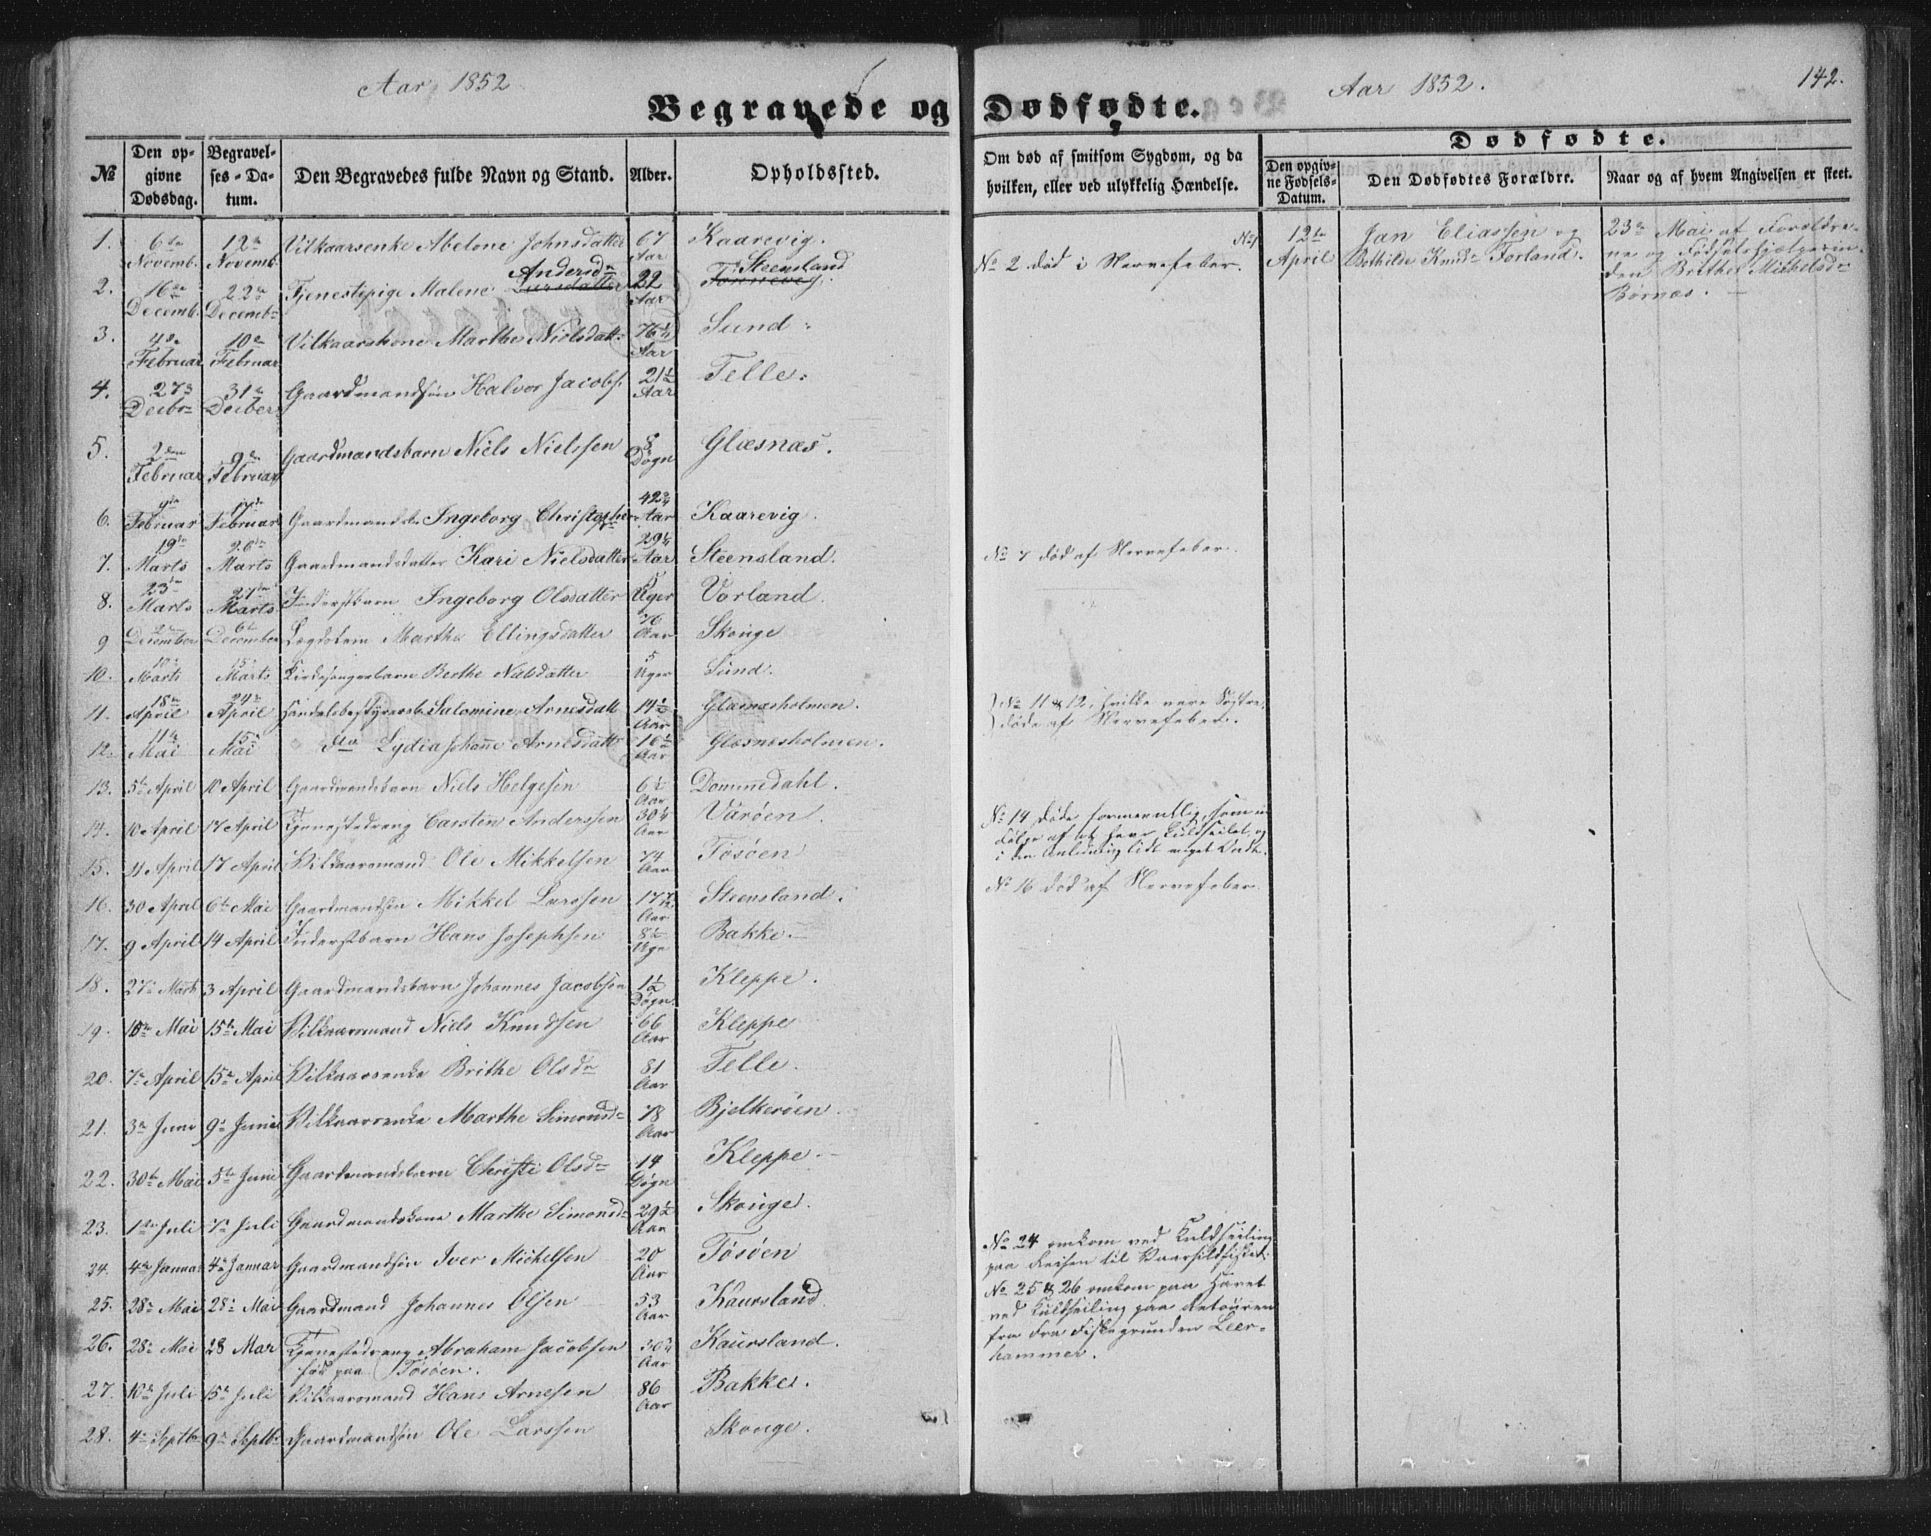 Aar 1852
Begravede og
№
Den op-
givne
Dødsdag.
Begravel-
ses - Da-
tum.
Den Begravedes fulde Navn og Stand.
Alder.
Opholdssted.
1. 6te Novemb. 12te Novemb. Vilkaarsenke Abelone Johnsdatter 67 Aar Kaarevig.
2. 16de Decemb. 22de Decemb. Tjenestepige Malene Larsdatter Andersdr 22 Aar Steensland
3. 4de Februar 10de Februar Vilkaarskone Marthe Nielsdatt. 76½ Aar Sund.
4. 27 Decbr 31te Decber Gaardmandsøn Halvor Jacobs. 21½ Aar Telle.
5. 2den Februar 9de Februar Gaardmandsbarn Niels Nielssen 8 Døgn Glesnæs.
6. Februar 17de Februar Ingeborg Christopher 42 Aar Kaarevig.
7. 19de Marts 26de Marts Gaardmandsdatter Kari Nielsdatter 29½ Aar Steensland.
8. 23de Marts 27de Marts Inderstbarn Ingeborg Olsdatter Uger Vorland.
9 December 6te December Lægdslem Marthe Ellingsdatter 76 Aar Skouge
10. Marts 15 Marts Kirkesangerbarn Berthe Nilsdatter 5 Uger Sund.
11. 18de April 24de April Salomine Arnesdatt 14½ Aar Glæsnæsholmen.
12. 11te Mai 15 Mai dto Lydia Johanne Arnesdatt 16½ Aar Glæsnæsholmen.
13. 5te April 10 April Gaardmandsbarn Niels Helgesen 6½ Aar Dommedahl.
14. 10 April 17 April Tjenestedreng Carsten Anderssen 30¼ Aar Varøen.
15. 11 April 17 April Vilkaarsmand Ole Mikkelsen 74 Aar Tøsøen
16. 30 April 6te Mai Gaardmandsøn Mikkel Larssen 17 Aar Steensland.
17. 9 April 14 April Inderstbarn Hans Josephsen 8½ Uge Bakke.
18. 27 Marts 3 April Gaardmandsbarn Johannes Jacobsen 1½ Døgn Kleppe.
19. 10de Mai 15de Mai Vilkaarsmand Niels Knudsen 66 Aar Kleppe
20. 7de April 15de April Vilkaarsenke Brithe Olsdr 81 Aar Telle.
21. 3de Juni 9de Juni Vilkaarsenke Marthe Simonsd. 78 Aar Bjelkerøen
22. 30te Mai 5te Juni Gaardmandsbarn Christi Olsdr 14 Døgn Kleppe.
23. 1ste Juli 7de Juli Gaardmandskone Marthe Simonsd. 29½ Aar Skouge.
24. 4de Januar 4de Januar Gaardmandsøn Iver Mickelsen 20 Aar Tøsøen
25. 28de Mai 28de Mai Gaardmand Johannes Olsen 53 Aar Kaursland.
26. 28de Mai 28 Mar Tjenestedreng Abraham Jacobsen 30¾ Aar Kaursland.
fød paa Tøsøen.
27. 10de Juli 15de Juli Vilkaarsmand Hans Arnesen 86 Aar Bakke.
28. 4de Septbr 9de Septbr Gaardmandsøn Ole Larssen Skouge.
Aar 1852.
142.
Dødfødte.
Om død af smitsom Sygdom, og da
hvilken, eller ved ulykkelig Hændelse.
Dødfødte.
Den opgiv-
ne Fødsels-
Datum.
Den Dødfødtes Forældre.
Naar og af hvem Angivelsen er skeet.
No 1 12te April Jan Eliassen og
Bothilde Knudsdr Torland.
23de Mai af Forældre-
ne og Fødselshjelperin-
den Brithe Mikkelsdr
Børnes.
No 2 død i Nervefeber.
No 7 død af Nervefeber.
No 11 & 12, hvilke vare Søstre,
døde af Nervefeber.
No 14 døde formeentlig som en
Følge af at have kuldseilet, og
i den Anledning lidt meget Ondt.
No 16 død af Nervefeber.
No 24 omkom ved Kuldseiling
paa Reisen til Vaarsildfisket.
No 25 & 26 omkom paa Havet
ved Kuldseiling paa Retouren
fra Fiskegrunden Leer-
hammer.